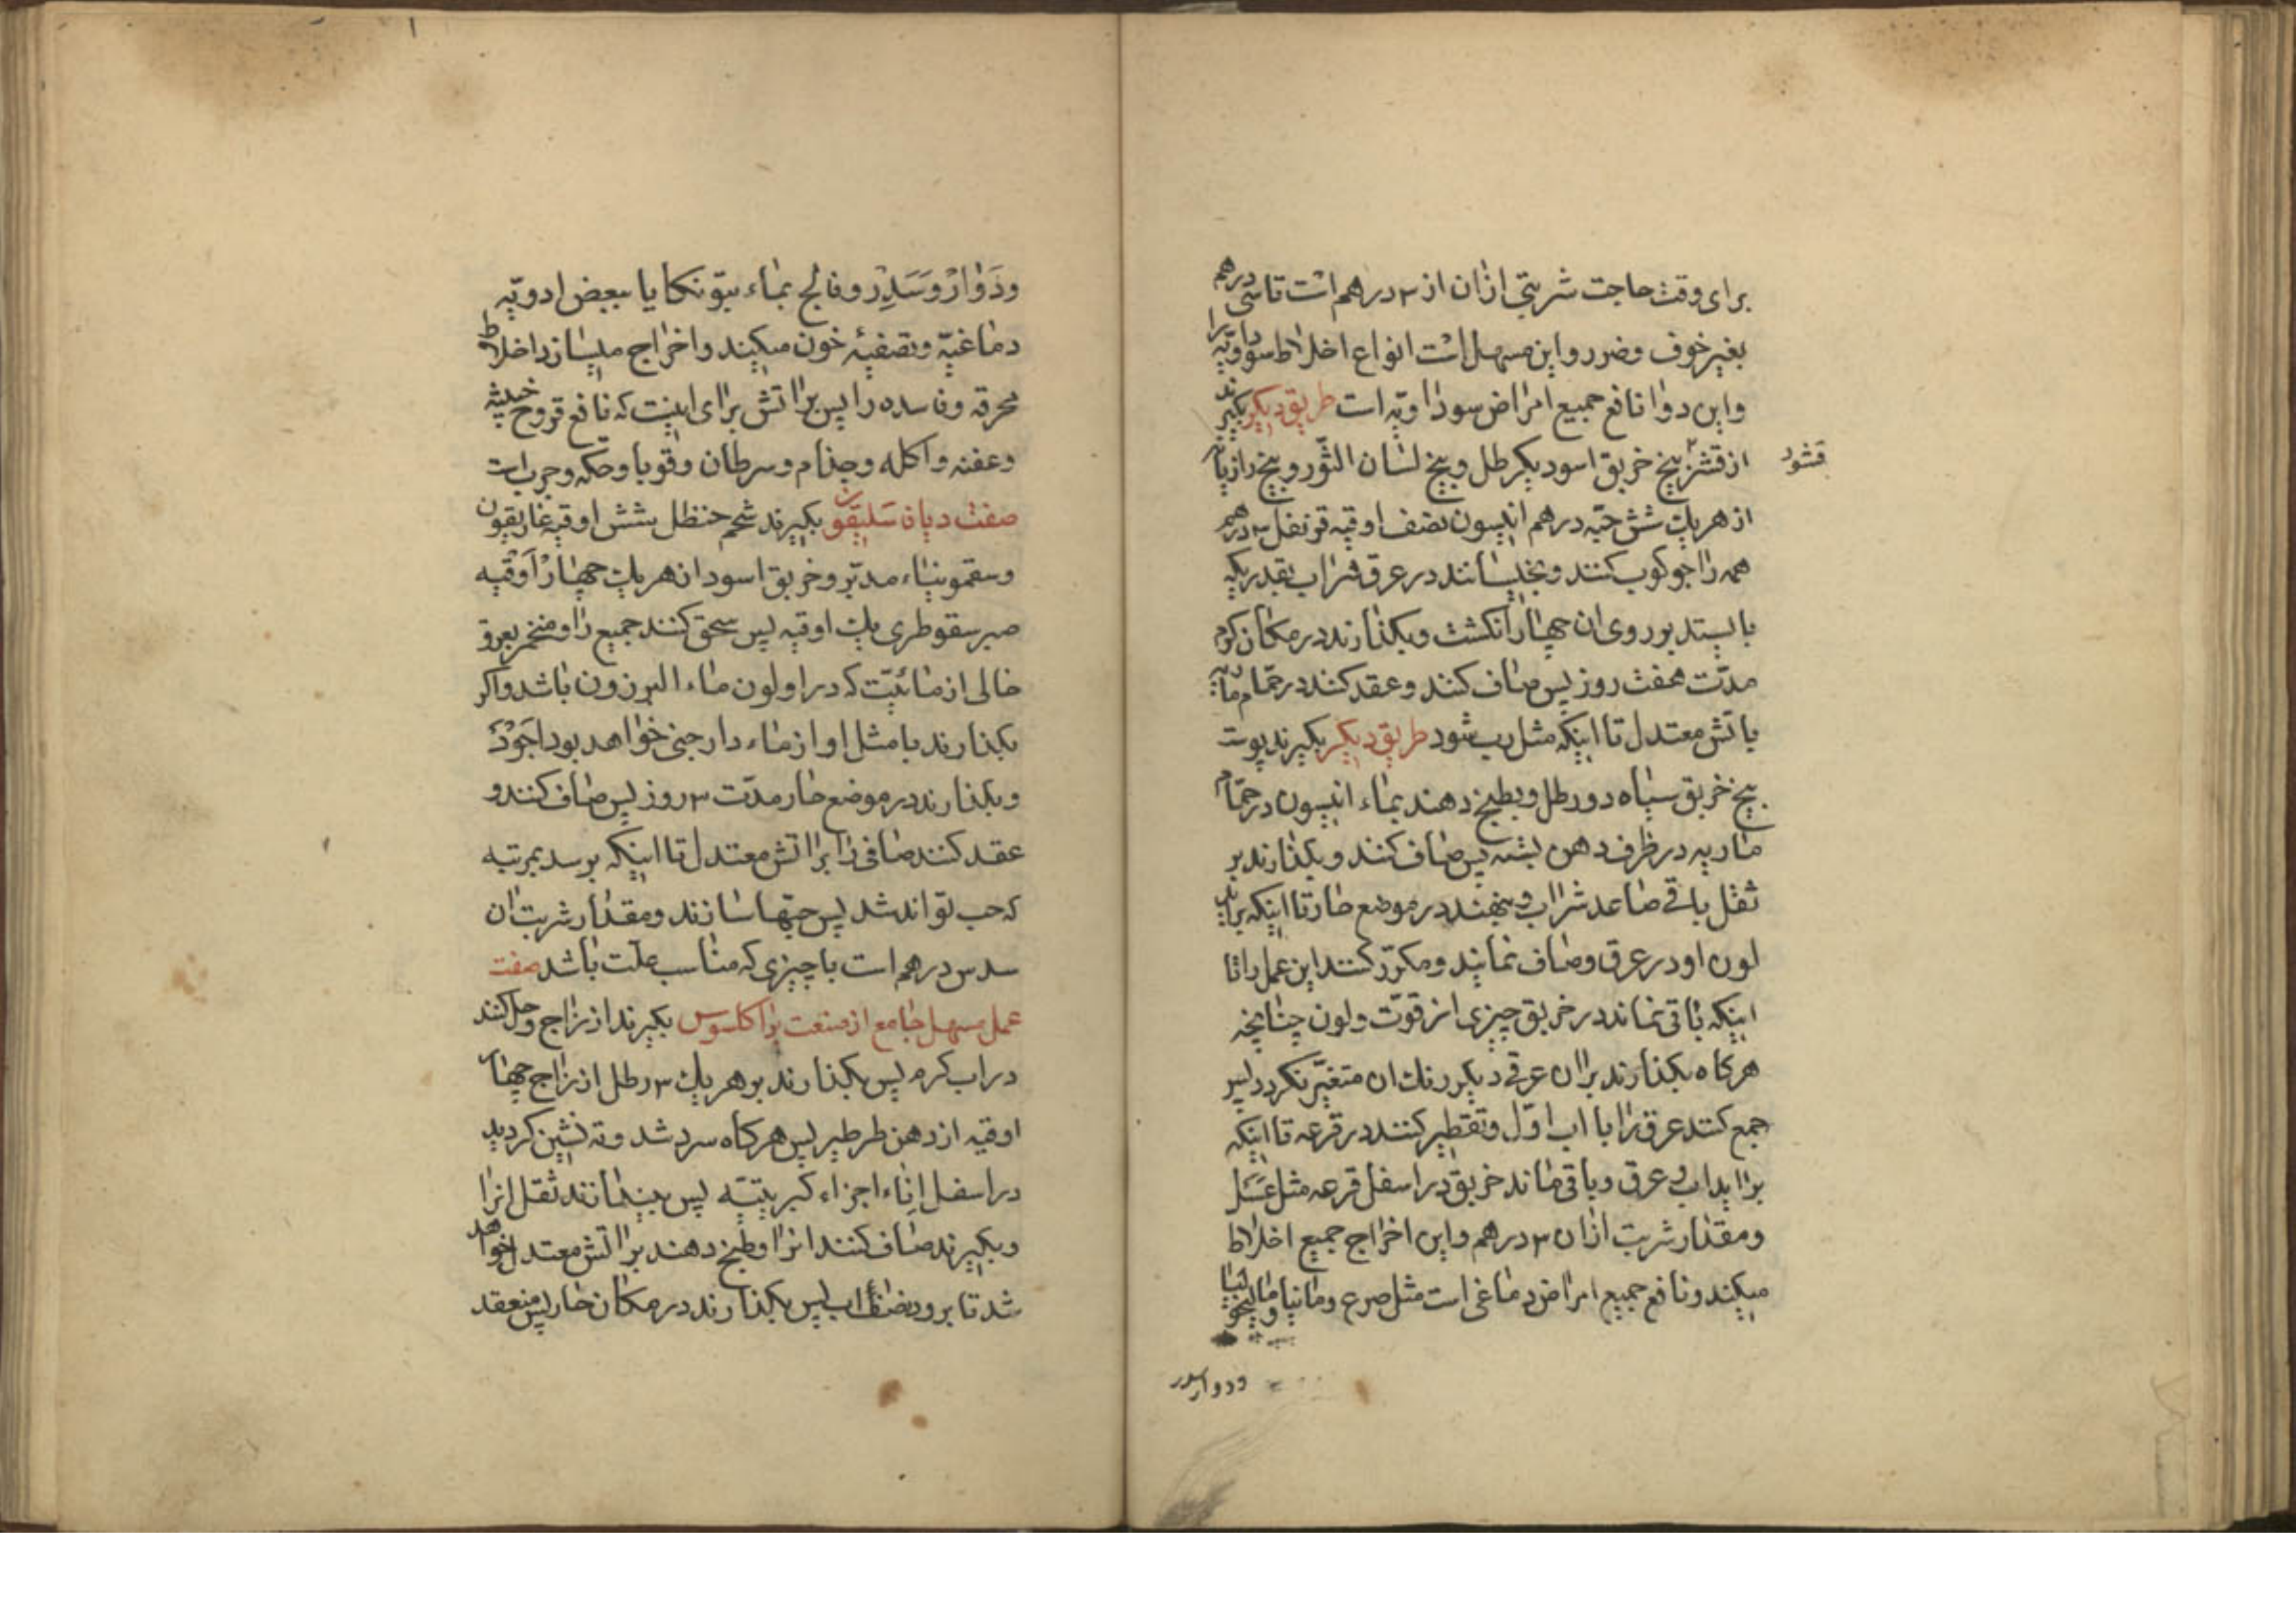 برای وقت حاجت شربتی ازان از ۲ درهم است تا سی درهم
بغیر خوف و ضرر و این مسهل است انواع اخلاط سوداویه را
و این دوا نافع جمیع امراض سوداویه است طریق دیکر بکیرند
از قشر بیخ خربق اسود یکرطل و بیخ لسان الثور و بیخ رازیانه
قشور
از هر یك شش حبه درهم انیسون نصف اوقیه قرنفل ۳ درهم
همه را جوکوب کنند و بخیسانند در عرق شراب بقدریکه
بایستد بر روی ان چهار انکشت و بکذارند در مکان کرم
مدت هفت روز پس صاف کنند و عقد کنند در حمام ماریه
باتش معتدل تا اینکه مثل رب شود طریق دیکر بکیرند پوست
بیخ خربق سیاه دو رطل و بطبیخ دهند بماء انیسون در حمام
ماریه در ظرف دهن بسته پس صاف کنند و بکذارند بر
ثفل باقی صاعد شراب و بنهند در موضع حار تا اینکه براید
لون او در عرق و صاف نمایند و مکرر کنند این عمل را تا
اینکه باقی نماند در خربق چیزی از قوت و لون چنانچه
هرکاه بکذارند بر ان عرقی دیکر رنك ان متغیر نکردد پس
جمع کنند عرق را با اب اول و تقطیر کنند در قرعه تا اینکه
براید اب و عرق و باقی ماند خربق در اسفل قرعه مثل عسل
و مقدار شربت ازان ۳ درهم و این اخراج جمیع اخلاط
میکند و نافع جمیع امراض دماغی است مثل صرع و مانیا و مالیخولیا
و دوار سدر
و دوار و سدر و فالج بماء بیتونکا یا ببعض ادویه
دماغیه و تصفیه خون میکند و اخراج میسازد اخلاط
محرقه و فاسده را پس برا اتش برای اینست که نافع قروح خبیثه
و عفنه و اکله و جذام و سرطان و قوبا و حکه و جرب است
صفت دیاناسلیقون بکیرند شحم حنظل شش اوقیه غاریقون
و سقمونیاء مدبر و خربق اسود از هر یك چهار اوقیه
صبر سقوطری یك اوقیه پس سحق کنند جمیع را و مخمر بعرق
خالی از مائیت که در او لون ماء البرزون باشد و اکر
بکذارند با مثل او از ماء دارچنی خواهد بود اجود
و بکذارند در موضع حار مدت ۳ روز پس صاف کنند و
عقد کنند صافی را برا اتش معتدل تا اینکه برسد بمرتبه
که حب تواند شد پس حبها سازند و مقدار شربت ان
سدس درهم است با چیزی که مناسب علت باشد صفت
عمل مسهل جامع از صنعت براکلسوس بکیرند از زاج و حل کنند
در اب کرم پس بکذارند بر هر یك ۳ رطل از زاج چهار
اوقیه از دهن طرطیر پس هرکاه سرد شد و ته نشین کردید
در اسفل اناء اجزاء کبریتیه پس بیندازند ثفل انرا
و بکیرند صاف کنند انرا و طبخ دهند برا اتش معتدل خواهد
شد تا برود نصف اب پس بکذارند در مکان حار پس منعقد